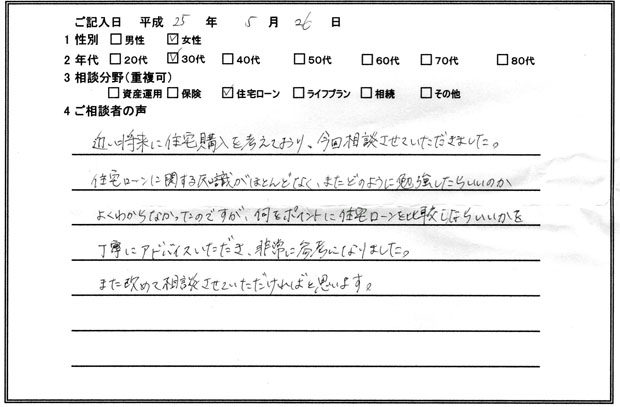 ご記入日 平成 25 年 5 月 26 日
1 性別 □男性 ☑女性
2 年代 □20代 ☑30代 □40代 □50代 □60代 □70代 □80代
3 相談分野(重複可)
□資産運用 □保険 ☑住宅ローン □ライフプラン □相続 □その他
4 ご相談者の声
近い将来に住宅購入を考えており、今回相談させていただきました。
住宅ローンに関する知識がほとんどなく、またどのように勉強したらいいのか
よくわからなかったのですが、何をポイントに住宅ローンを比較したらいいかを
丁寧にアドバイスいただき、非常に参考になりました。
また改めて相談させていただければと思います。